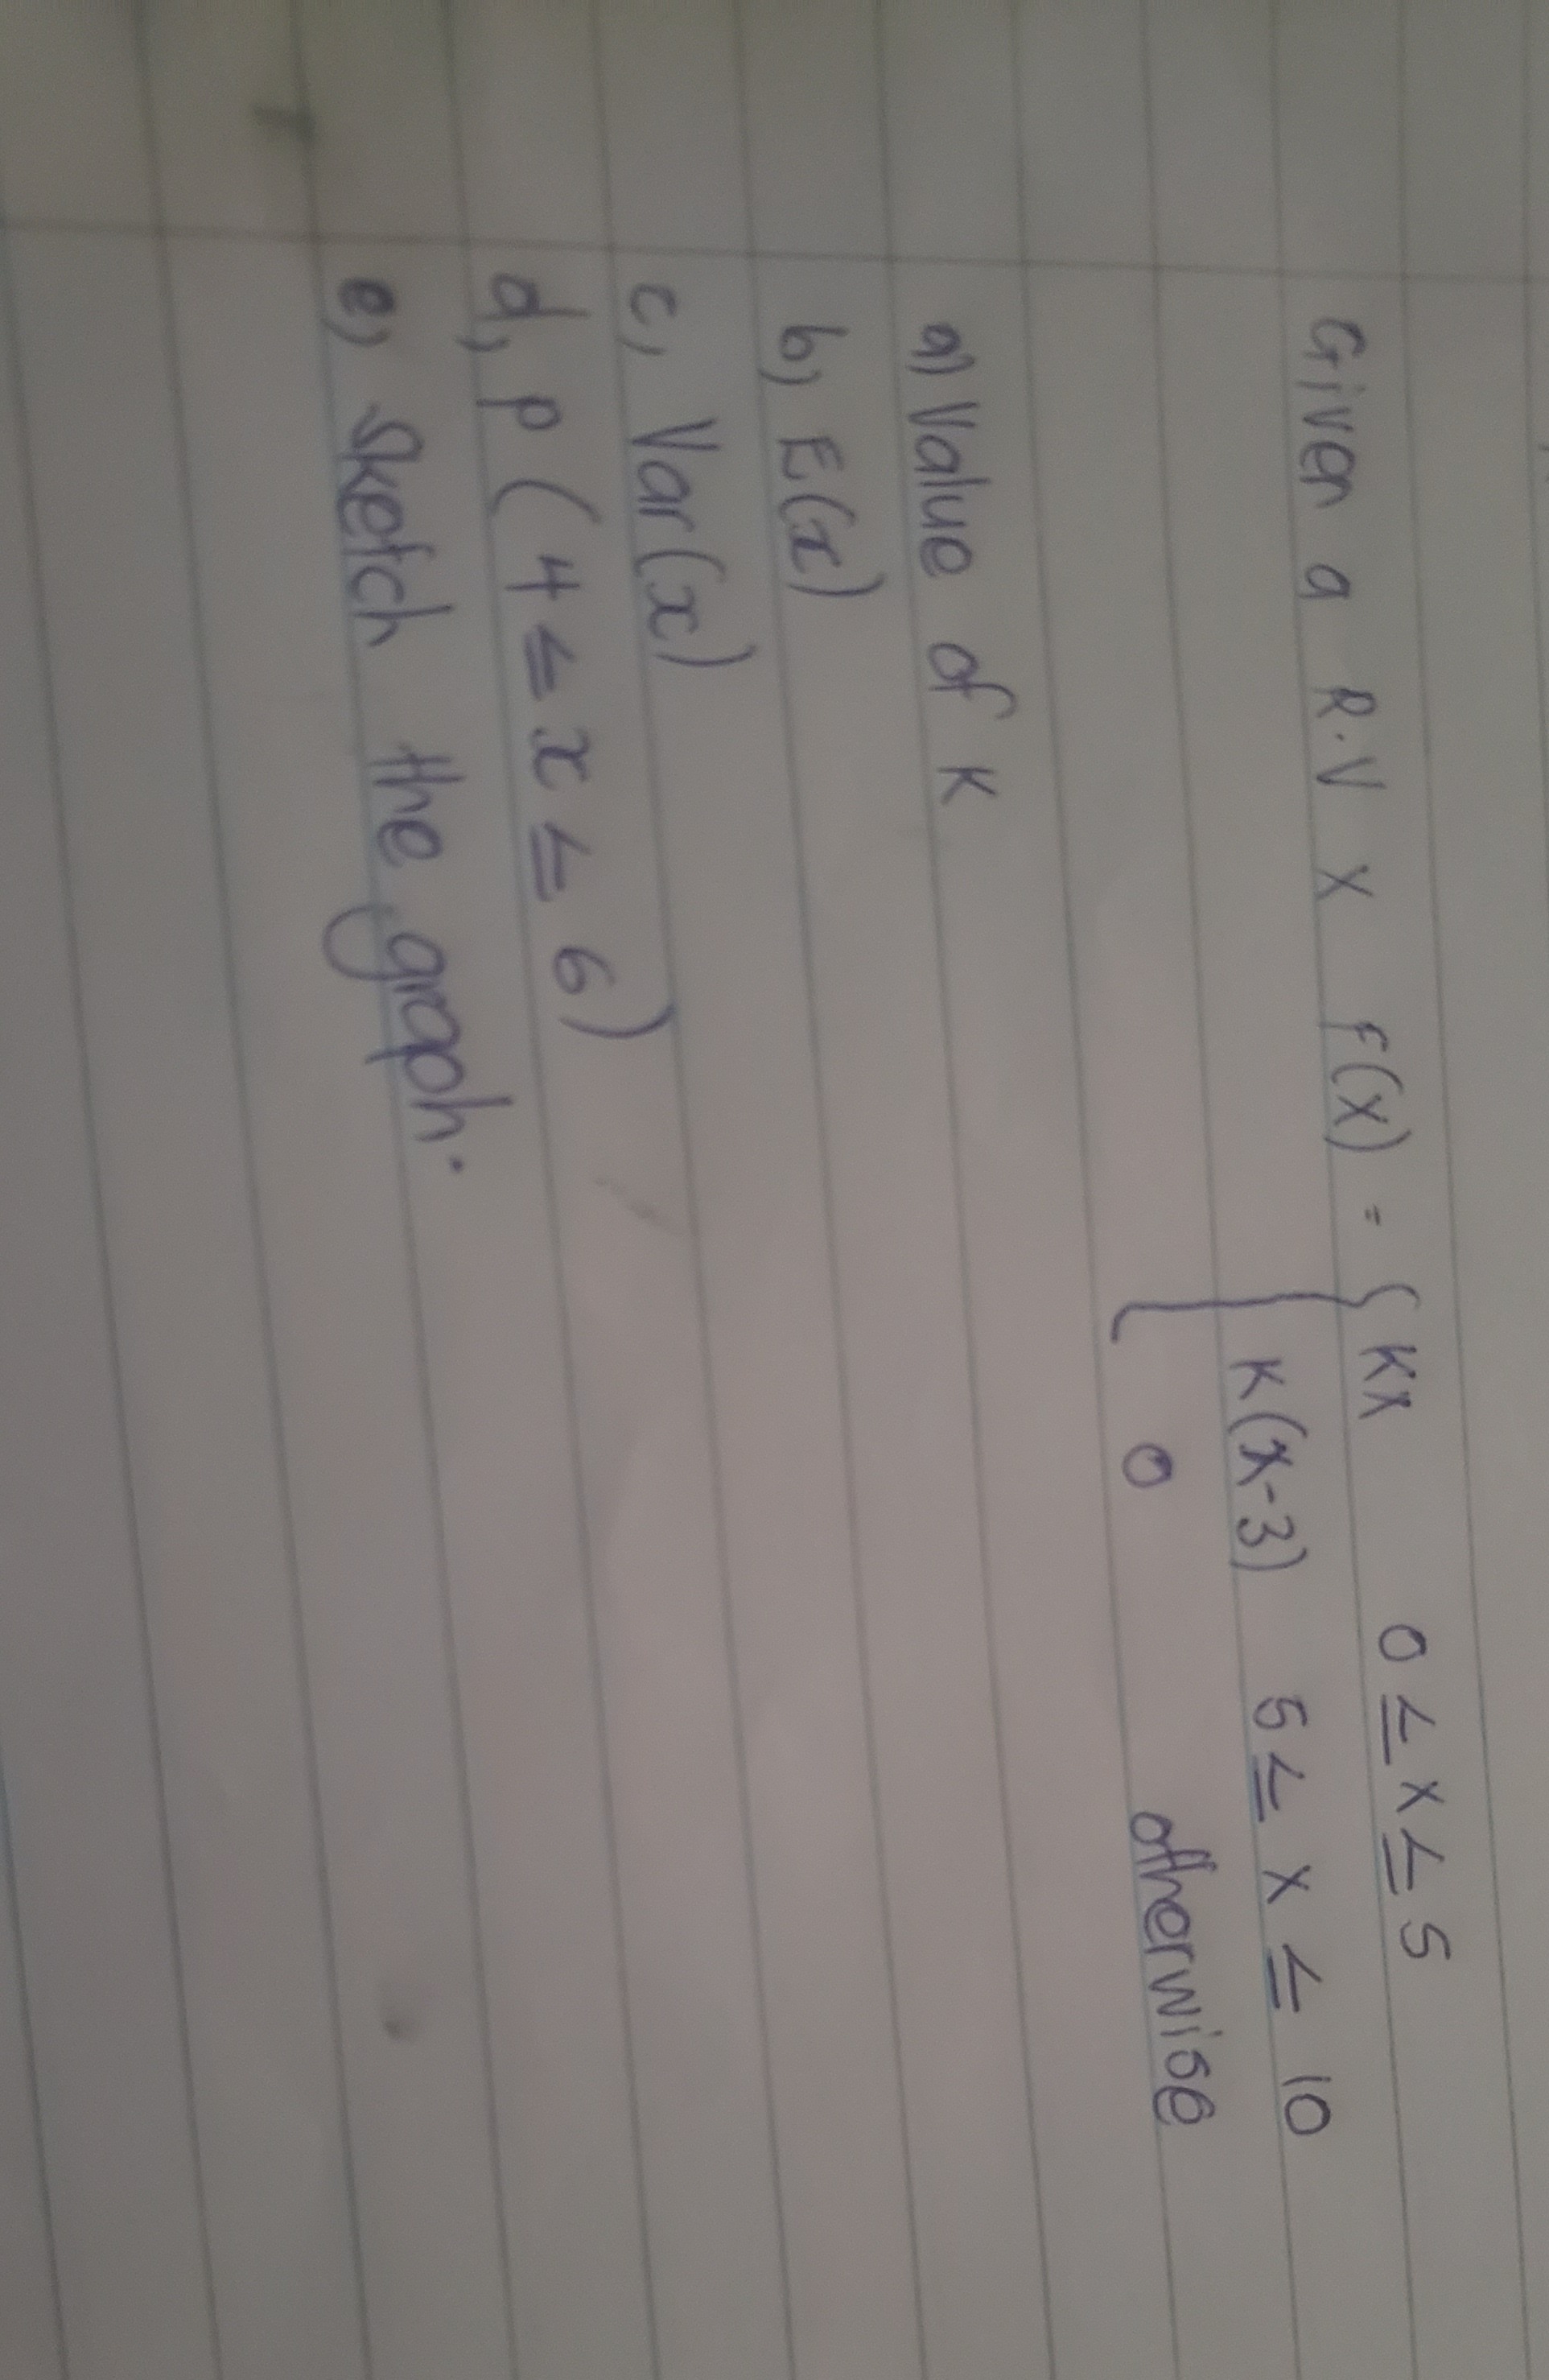 Given a R.V X f(x) = { Kx 0 ≤ x ≤ 5
K(x-3) 5 ≤ x ≤ 10
0 otherwise
a) Value of K
b) E(x)
c) Var(x)
d) P(4 ≤ x ≤ 6)
e) Sketch the graph.